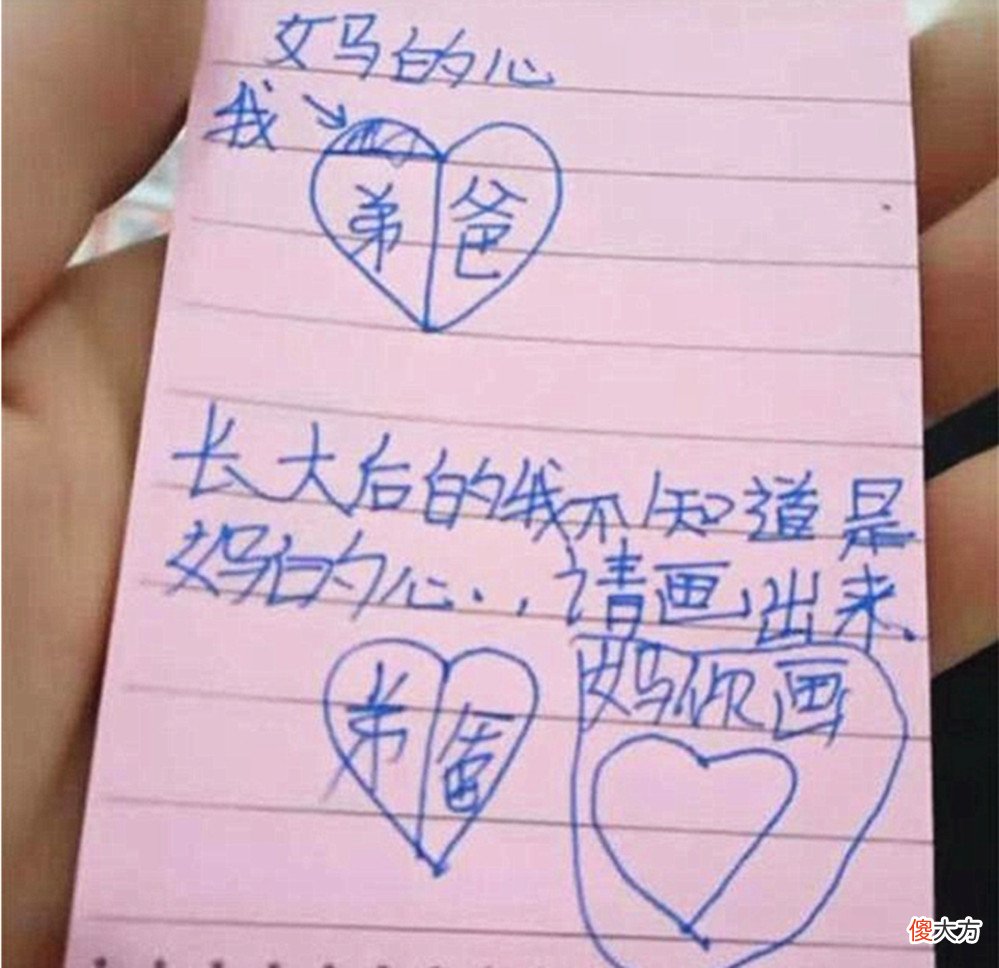 妈的心
我
弟 爸
长大后的我不知道是
妈的心..,请画出来.
弟 爸
妈你画
傻大方